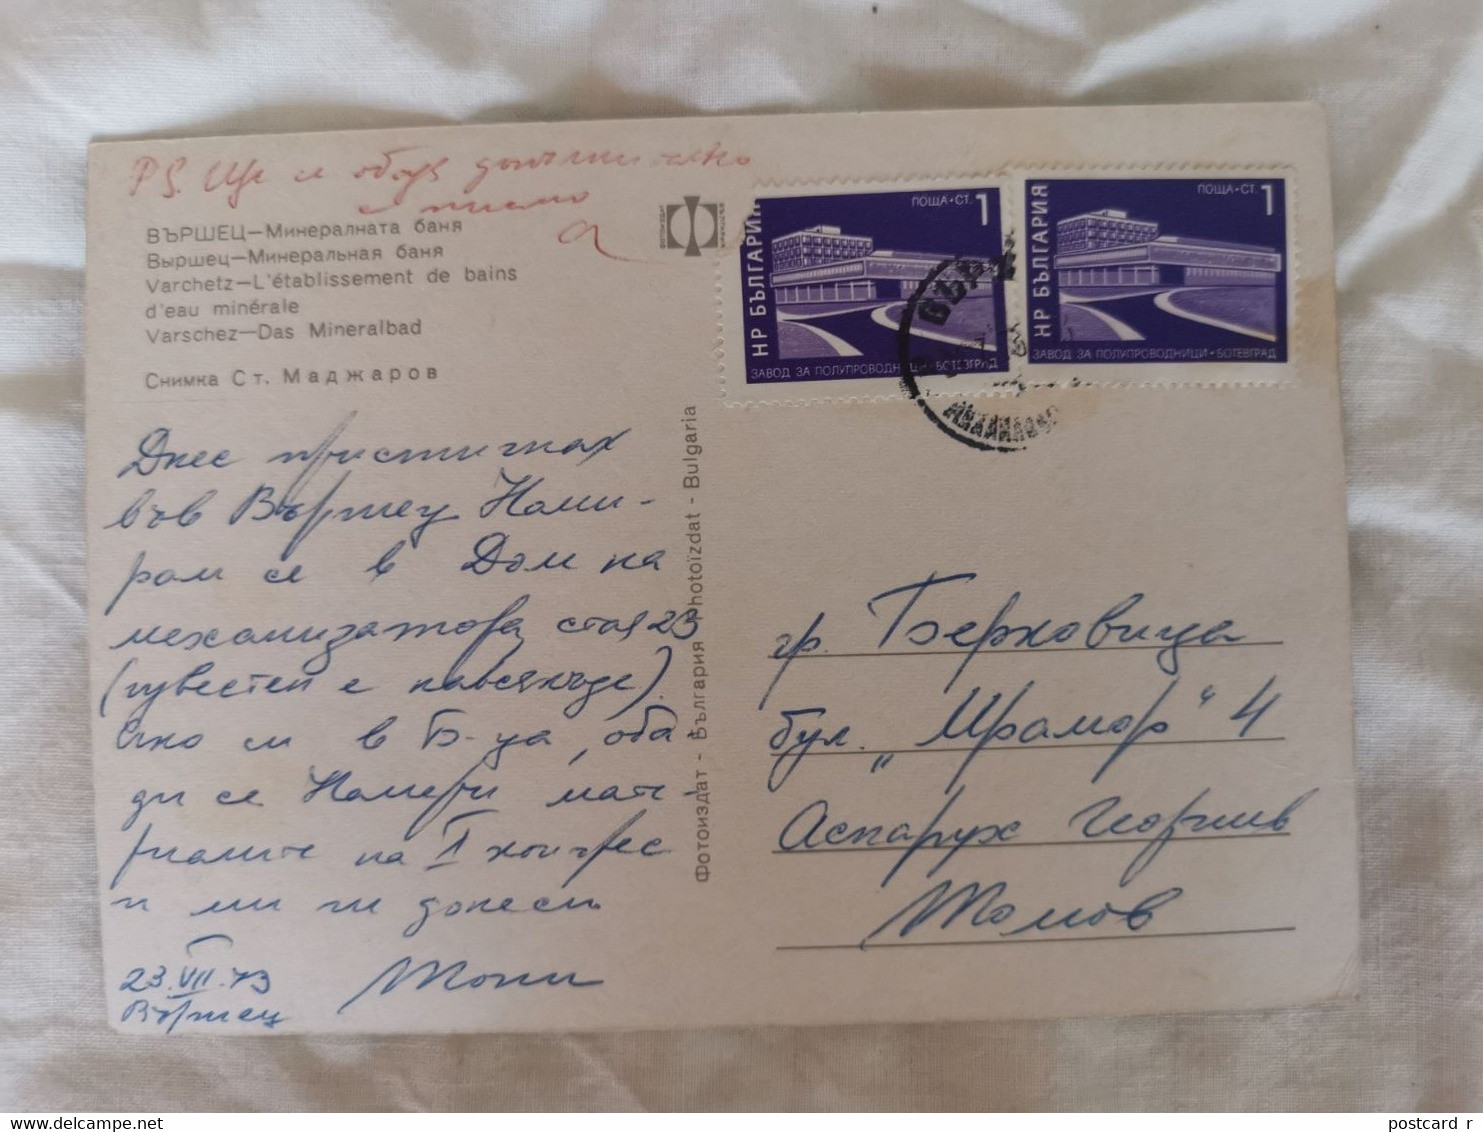 PS. Ще се обадя допълнително
с писмо
ВЪРШЕЦ—Минералната баня
Выршец—Минеральная баня
Varchetz—L'établissement de bains
d'eau minérale
Varschez—Das Mineralbad
Снимка Ст. Маджаров
Днес пристигнах
във Вършец Нами-
рам се в Дом на
механизатора стая 23
(известен е навсякъде).
Ако си в Б-ца, оба-
ди се Намери мате-
риалите на I конгрес
и ми ги донеси
23.VII.73
Тони
Вършец
Фотоиздат - България Photoïzdat - Bulgaria
НР БЪЛГАРИЯ
ПОЩА•СТ. 1
ЗАВОД ЗА ПОЛУПРОВОДНИЦИ•БОТЕВГРАД
НР БЪЛГАРИЯ
ПОЩА•СТ. 1
ЗАВОД ЗА ПОЛУПРОВОДНИЦИ•БОТЕВГРАД
гр. Берковица
бул. „Мрамор" 4
Аспарух Георгиев
Томов
postcard r